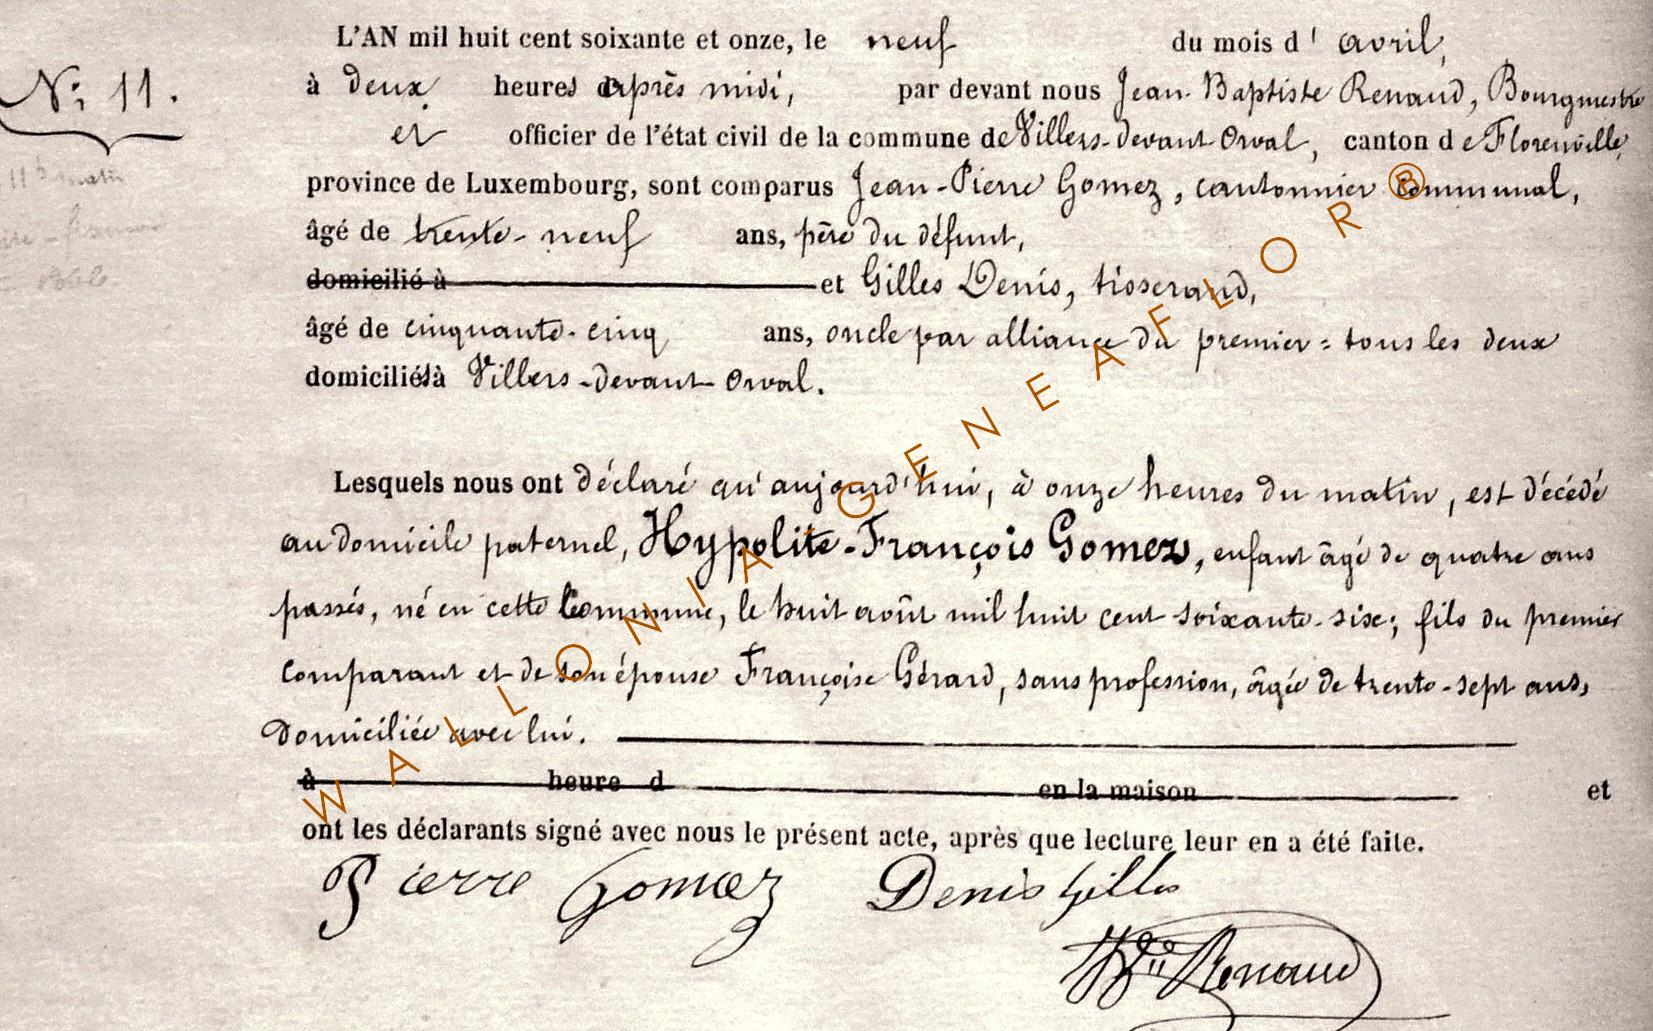 L'AN mil huit cent soixante et onze, le neuf du mois d' avril,
N°: 11.
à deux heures après midi, par devant nous Jean-Baptiste Renaud, Bourgmestre
et officier de l'état civil de la commune de Villers-devant-Orval, canton de Florenville,
11 h matin
province de Luxembourg, sont comparus Jean-Pierre Gomez, cantonnier communal,
âgé de trente-neuf ans, père du défunt,
domicilié à et Gilles Denis, tisserand,
âgé de cinquante-cinq ans, oncle par alliance du premier: tous les deux
domiciliés à Villers-devant-Orval.
Lesquels nous ont déclaré qu'aujourd'hui, à onze heures du matin, est décédé
au domicile paternel, Hypolite-François Gomez, enfant âgé de quatre ans
passés, né en cette Commune, le huit août mil huit cent soixante-six; fils du premier
comparant et de son épouse Françoise Gérard, sans profession, âgée de trente-sept ans,
domiciliée avec lui.
à heure d en la maison et
ont les déclarants signé avec nous le présent acte, après que lecture leur en a été faite.
Pierre Gomez Denis Gilles
Renaud
WALLONIA-GENEAFLOR®